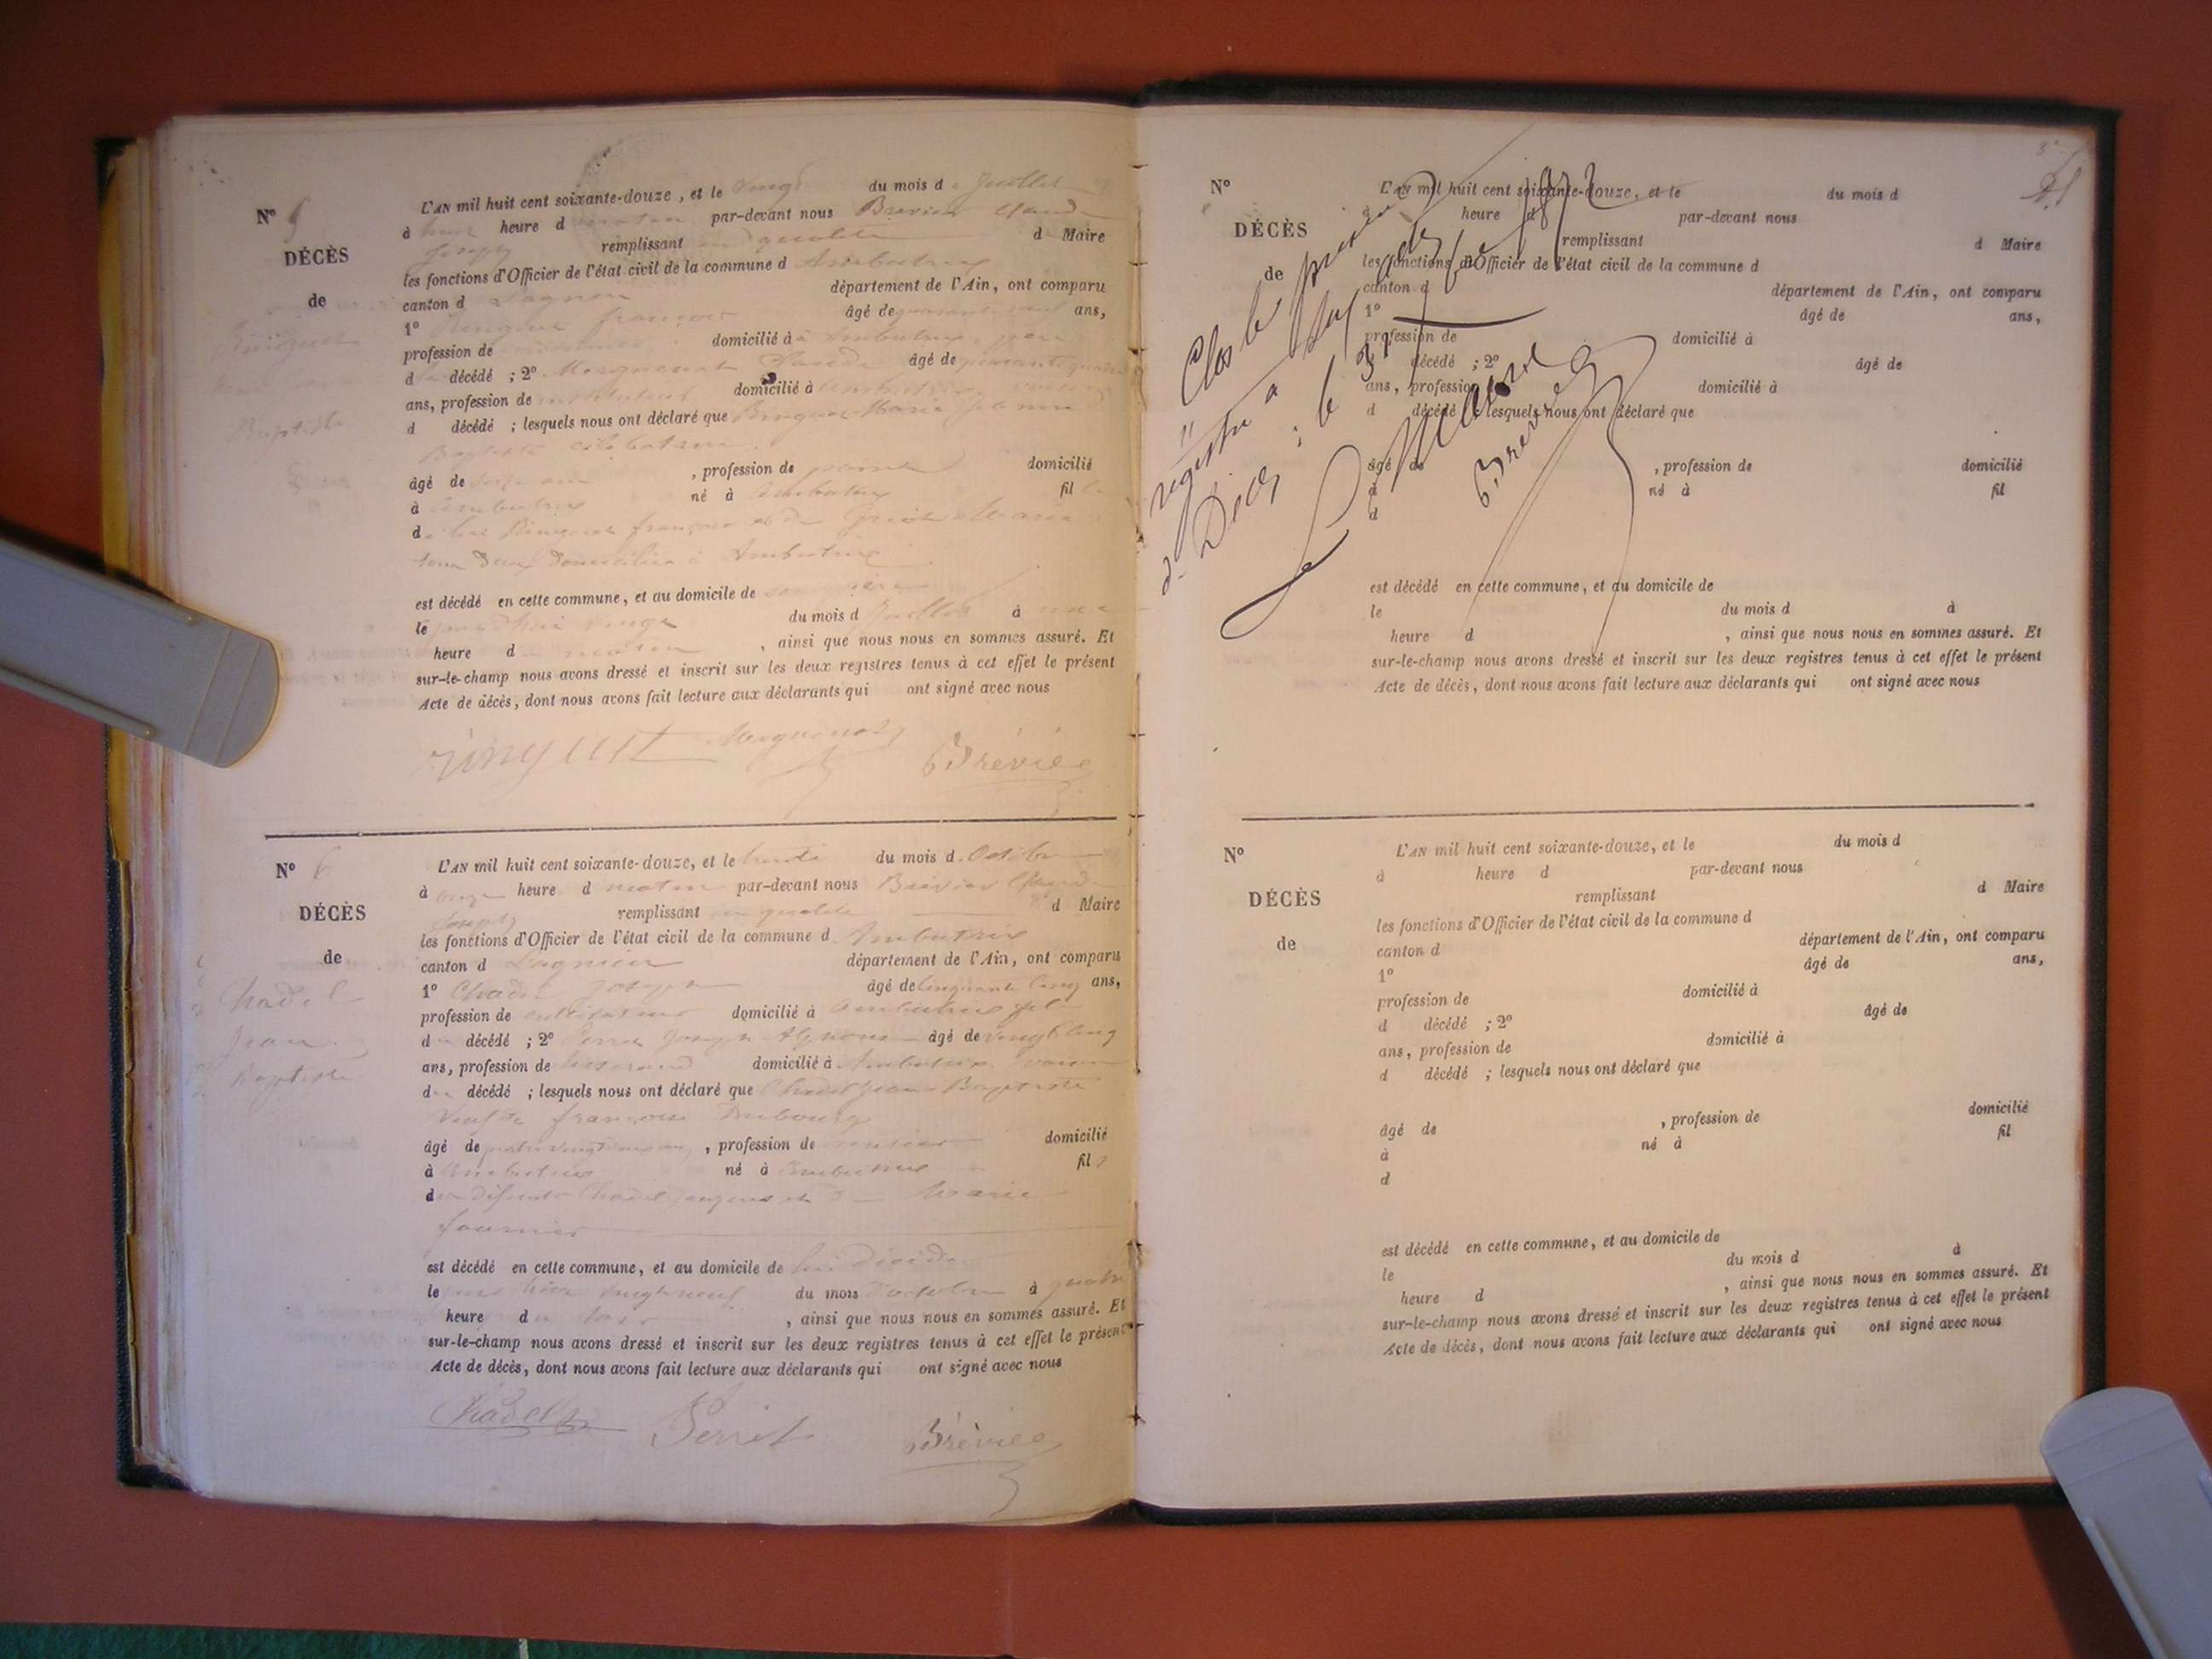 N° 5
DÉCÈS
de
Baptiste
L'AN mil huit cent soixante-douze, et le vingt du mois de Juillet
à huit heure d matin par-devant nous Brevier Claude
Joseph remplissant en qualité d Maire
les fonctions d'Officier de l'état civil de la commune d Ambutrix
canton d Lagnieu département de l'Ain, ont comparu
1° Ringuet françois âgé de quarante neuf ans,
profession de domicilié à Ambutrix père
d la décédé ; 2° Morgnenat Claude âgé de quarante quatre
ans, profession de instituteur domicilié à Ambutrix voisin
d décédé ; lesquels nous ont déclaré que Ringuet Marie Jeanne
Baptiste célibataire
âgé de seize ans, profession de domicilié
à Ambutrix né à Ambutrix fil
de feu Ringuet françois et de Marie
tous deux domiciliés à Ambutrix
est décédé en cette commune, et au domicile de son père
le jourd'hui vingt du mois d Juillet à une
heure d matin, ainsi que nous nous en sommes assuré. Et
sur-le-champ nous avons dressé et inscrit sur les deux registres tenus à cet effet le présent
Acte de décès, dont nous avons fait lecture aux déclarants qui ont signé avec nous
ringuet Brévier
N° 6
DÉCÈS
de
Chadel
Jean
Baptiste
L'AN mil huit cent soixante-douze, et le trente du mois d Octobre
à onze heure d matin par-devant nous Brévier Claude
Joseph remplissant en qualité d Maire
les fonctions d'Officier de l'état civil de la commune d Ambutrix
canton d Lagnieu département de l'Ain, ont comparu
1° Chadel Joseph âgé de Cinquante Cinq ans,
profession de cultivateur domicilié à Ambutrix fils
du décédé ; 2° Perret Joseph Alphonse âgé de vingt cinq
ans, profession de tisserand domicilié à Ambutrix voisin
du décédé ; lesquels nous ont déclaré que Chadel Jean Baptiste
Veuf de françoise Dubourg
âgé de quatre vingt ans, profession de rentier domicilié
à Ambutrix né à Ambutrix fils
des défunts Chadel Jacques et d Marie
fournier
est décédé en cette commune, et au domicile de lui décédé
le jour hier vingt neuf du mois d'octobre à quatre
heure du soir, ainsi que nous nous en sommes assuré. Et
sur-le-champ nous avons dressé et inscrit sur les deux registres tenus à cet effet le présent
Acte de décès, dont nous avons fait lecture aux déclarants qui ont signé avec nous
Chadel Perret Brévier
N°
DÉCÈS
de
L'AN mil huit cent soixante-douze, et le du mois d
à heure d par-devant nous
remplissant d Maire
les fonctions d'Officier de l'état civil de la commune d
canton d département de l'Ain, ont comparu
1° âgé de ans,
profession de domicilié à
d décédé ; 2° âgé de
ans, profession de domicilié à
d décédé ; lesquels nous ont déclaré que
âgé de , profession de domicilié
à né à fil
d
est décédé en cette commune, et au domicile de
le du mois d à
heure d , ainsi que nous nous en sommes assuré. Et
sur-le-champ nous avons dressé et inscrit sur les deux registres tenus à cet effet le présent
Acte de décès, dont nous avons fait lecture aux déclarants qui ont signé avec nous
Clos le présent
registre a six actes
de Décès ; le 31 1872
Le Maire
Brévier
N°
DÉCÈS
de
L'AN mil huit cent soixante-douze, et le du mois d
à heure d par-devant nous
remplissant d Maire
les fonctions d'Officier de l'état civil de la commune d
canton d département de l'Ain, ont comparu
1° âgé de ans,
profession de domicilié à
d décédé ; 2° âgé de
ans, profession de domicilié à
d décédé ; lesquels nous ont déclaré que
âgé de , profession de domicilié
à né à fil
d
est décédé en cette commune, et au domicile de
le du mois d à
heure d , ainsi que nous nous en sommes assuré. Et
sur-le-champ nous avons dressé et inscrit sur les deux registres tenus à cet effet le présent
Acte de décès, dont nous avons fait lecture aux déclarants qui ont signé avec nous